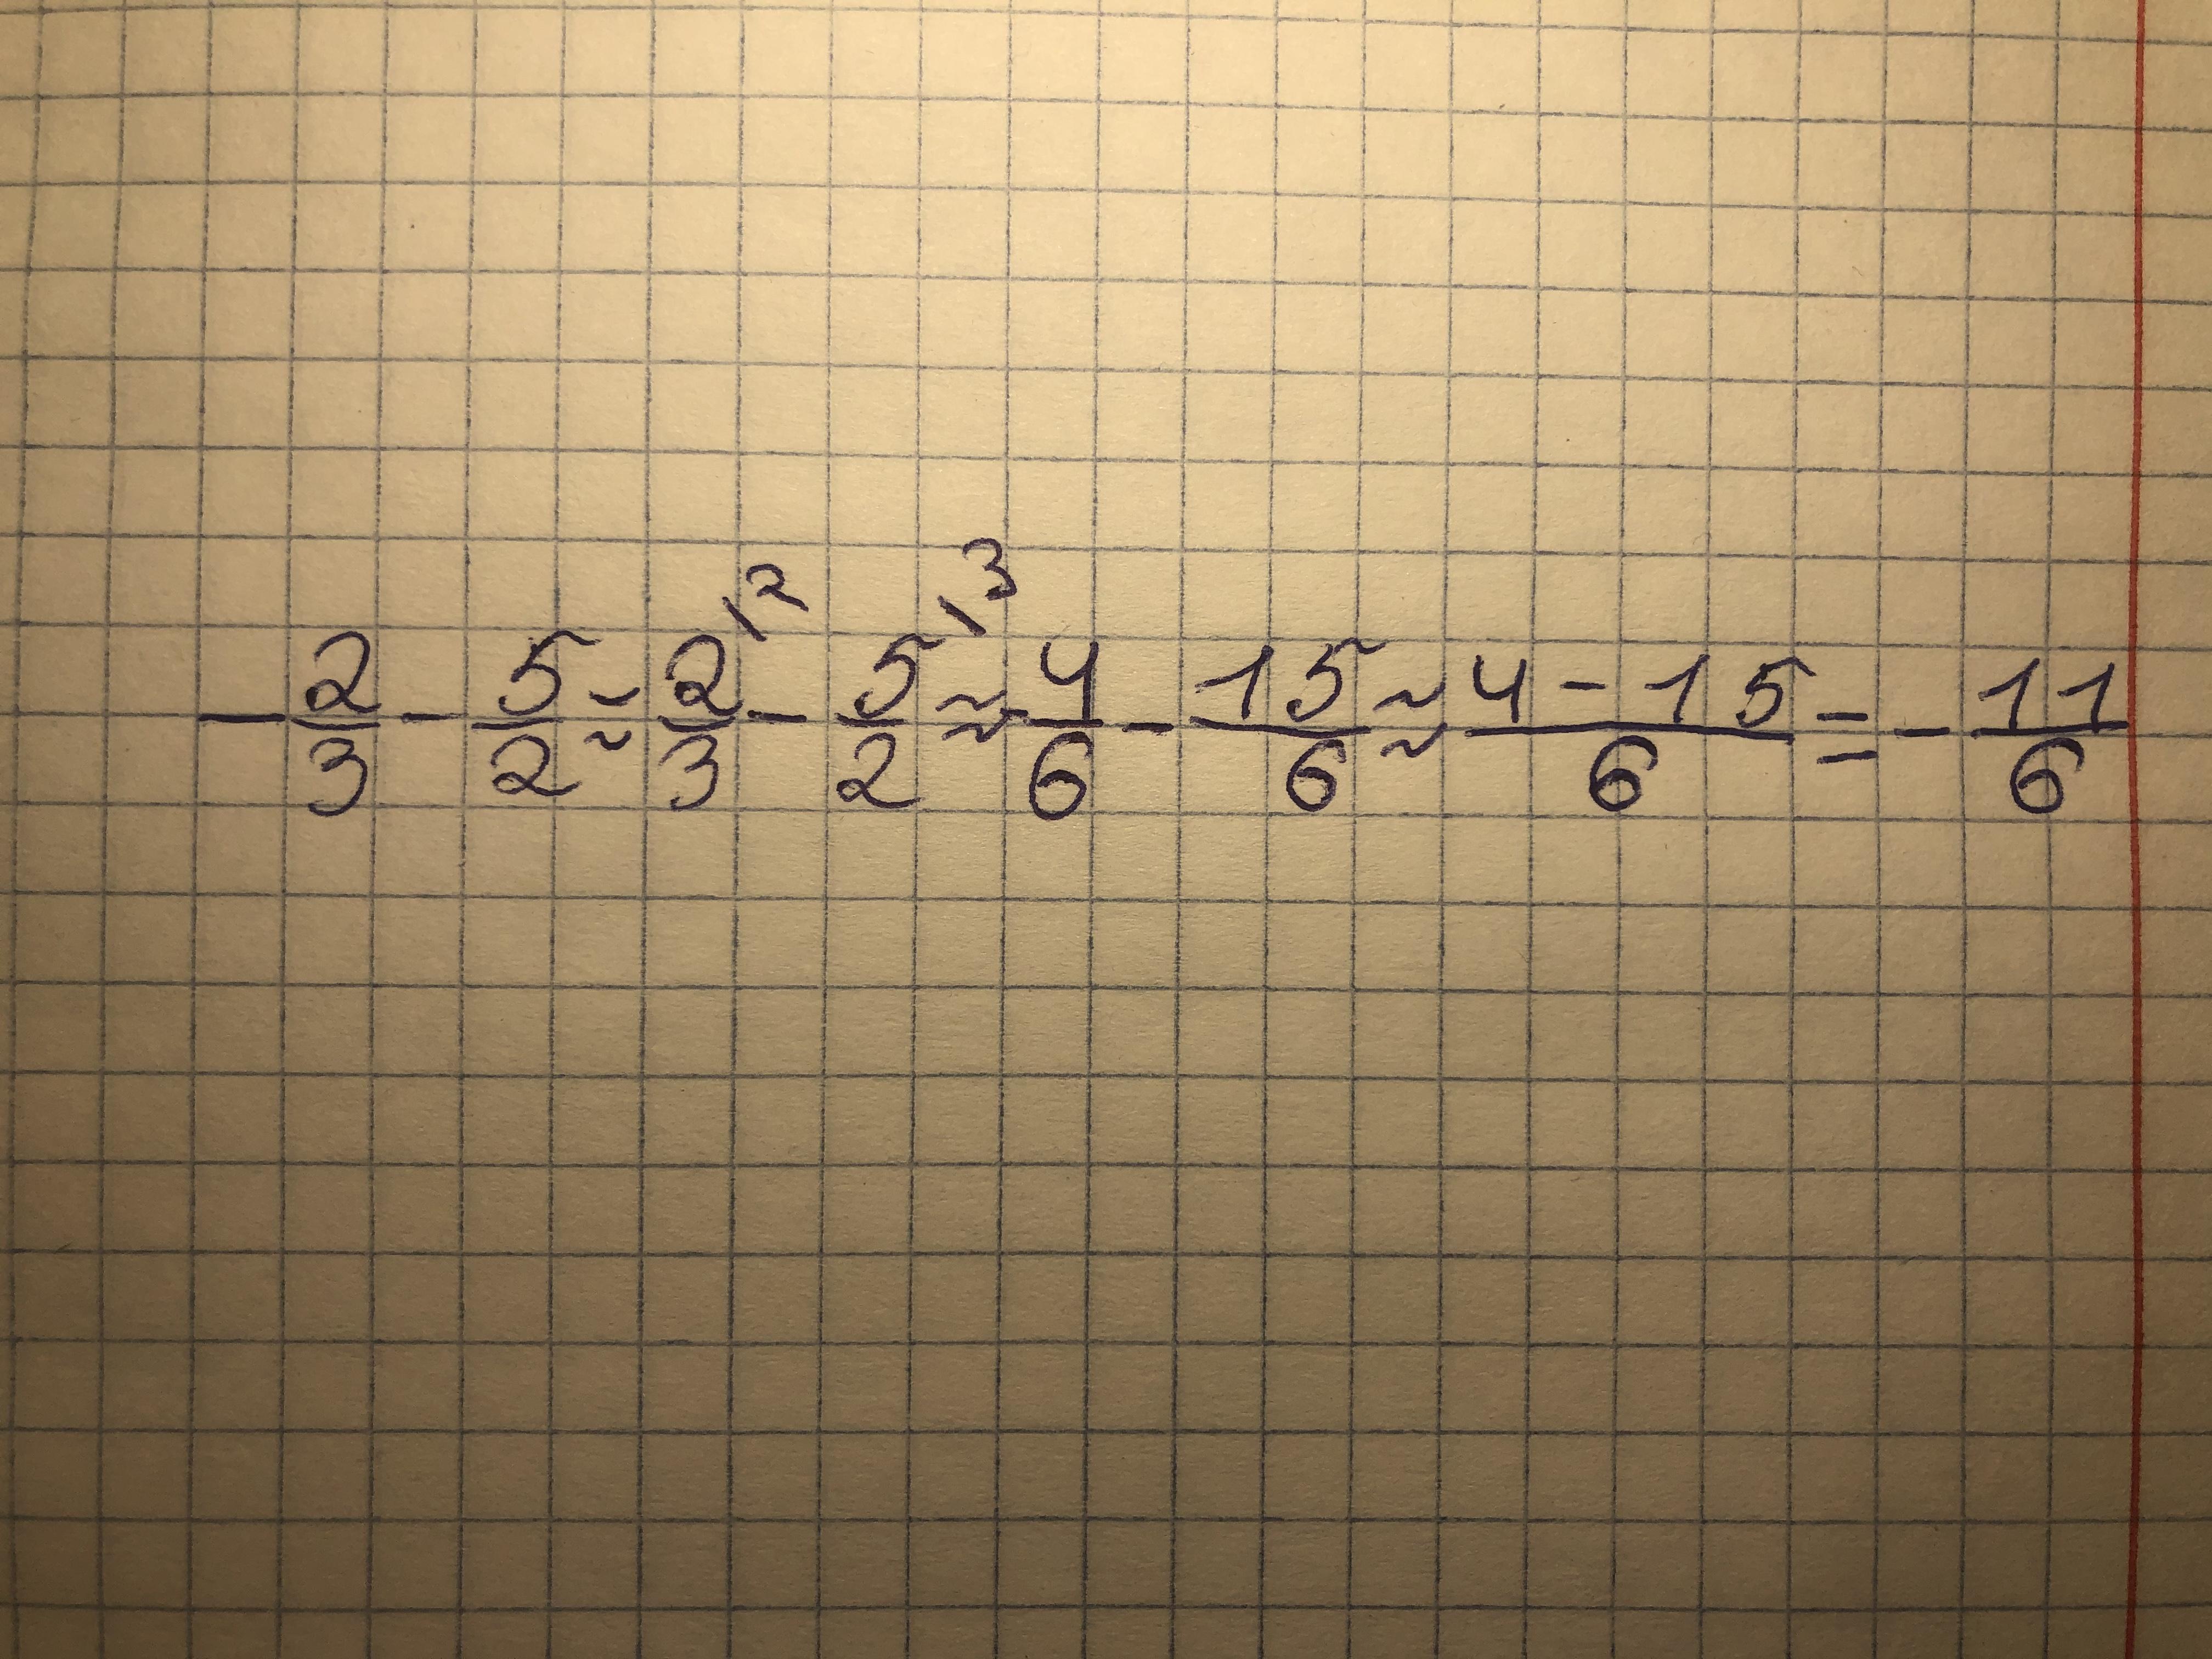 -2/3 - 5/2 ≈ 2/3^{\2} - 5/2^{\3} ≈ 4/6 - 15/6 ≈ (4-15)/6 = -11/6